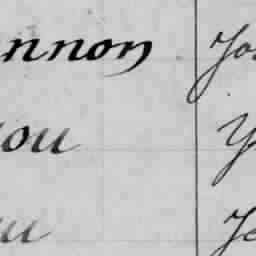 nnon Jos
ou Y
u Je